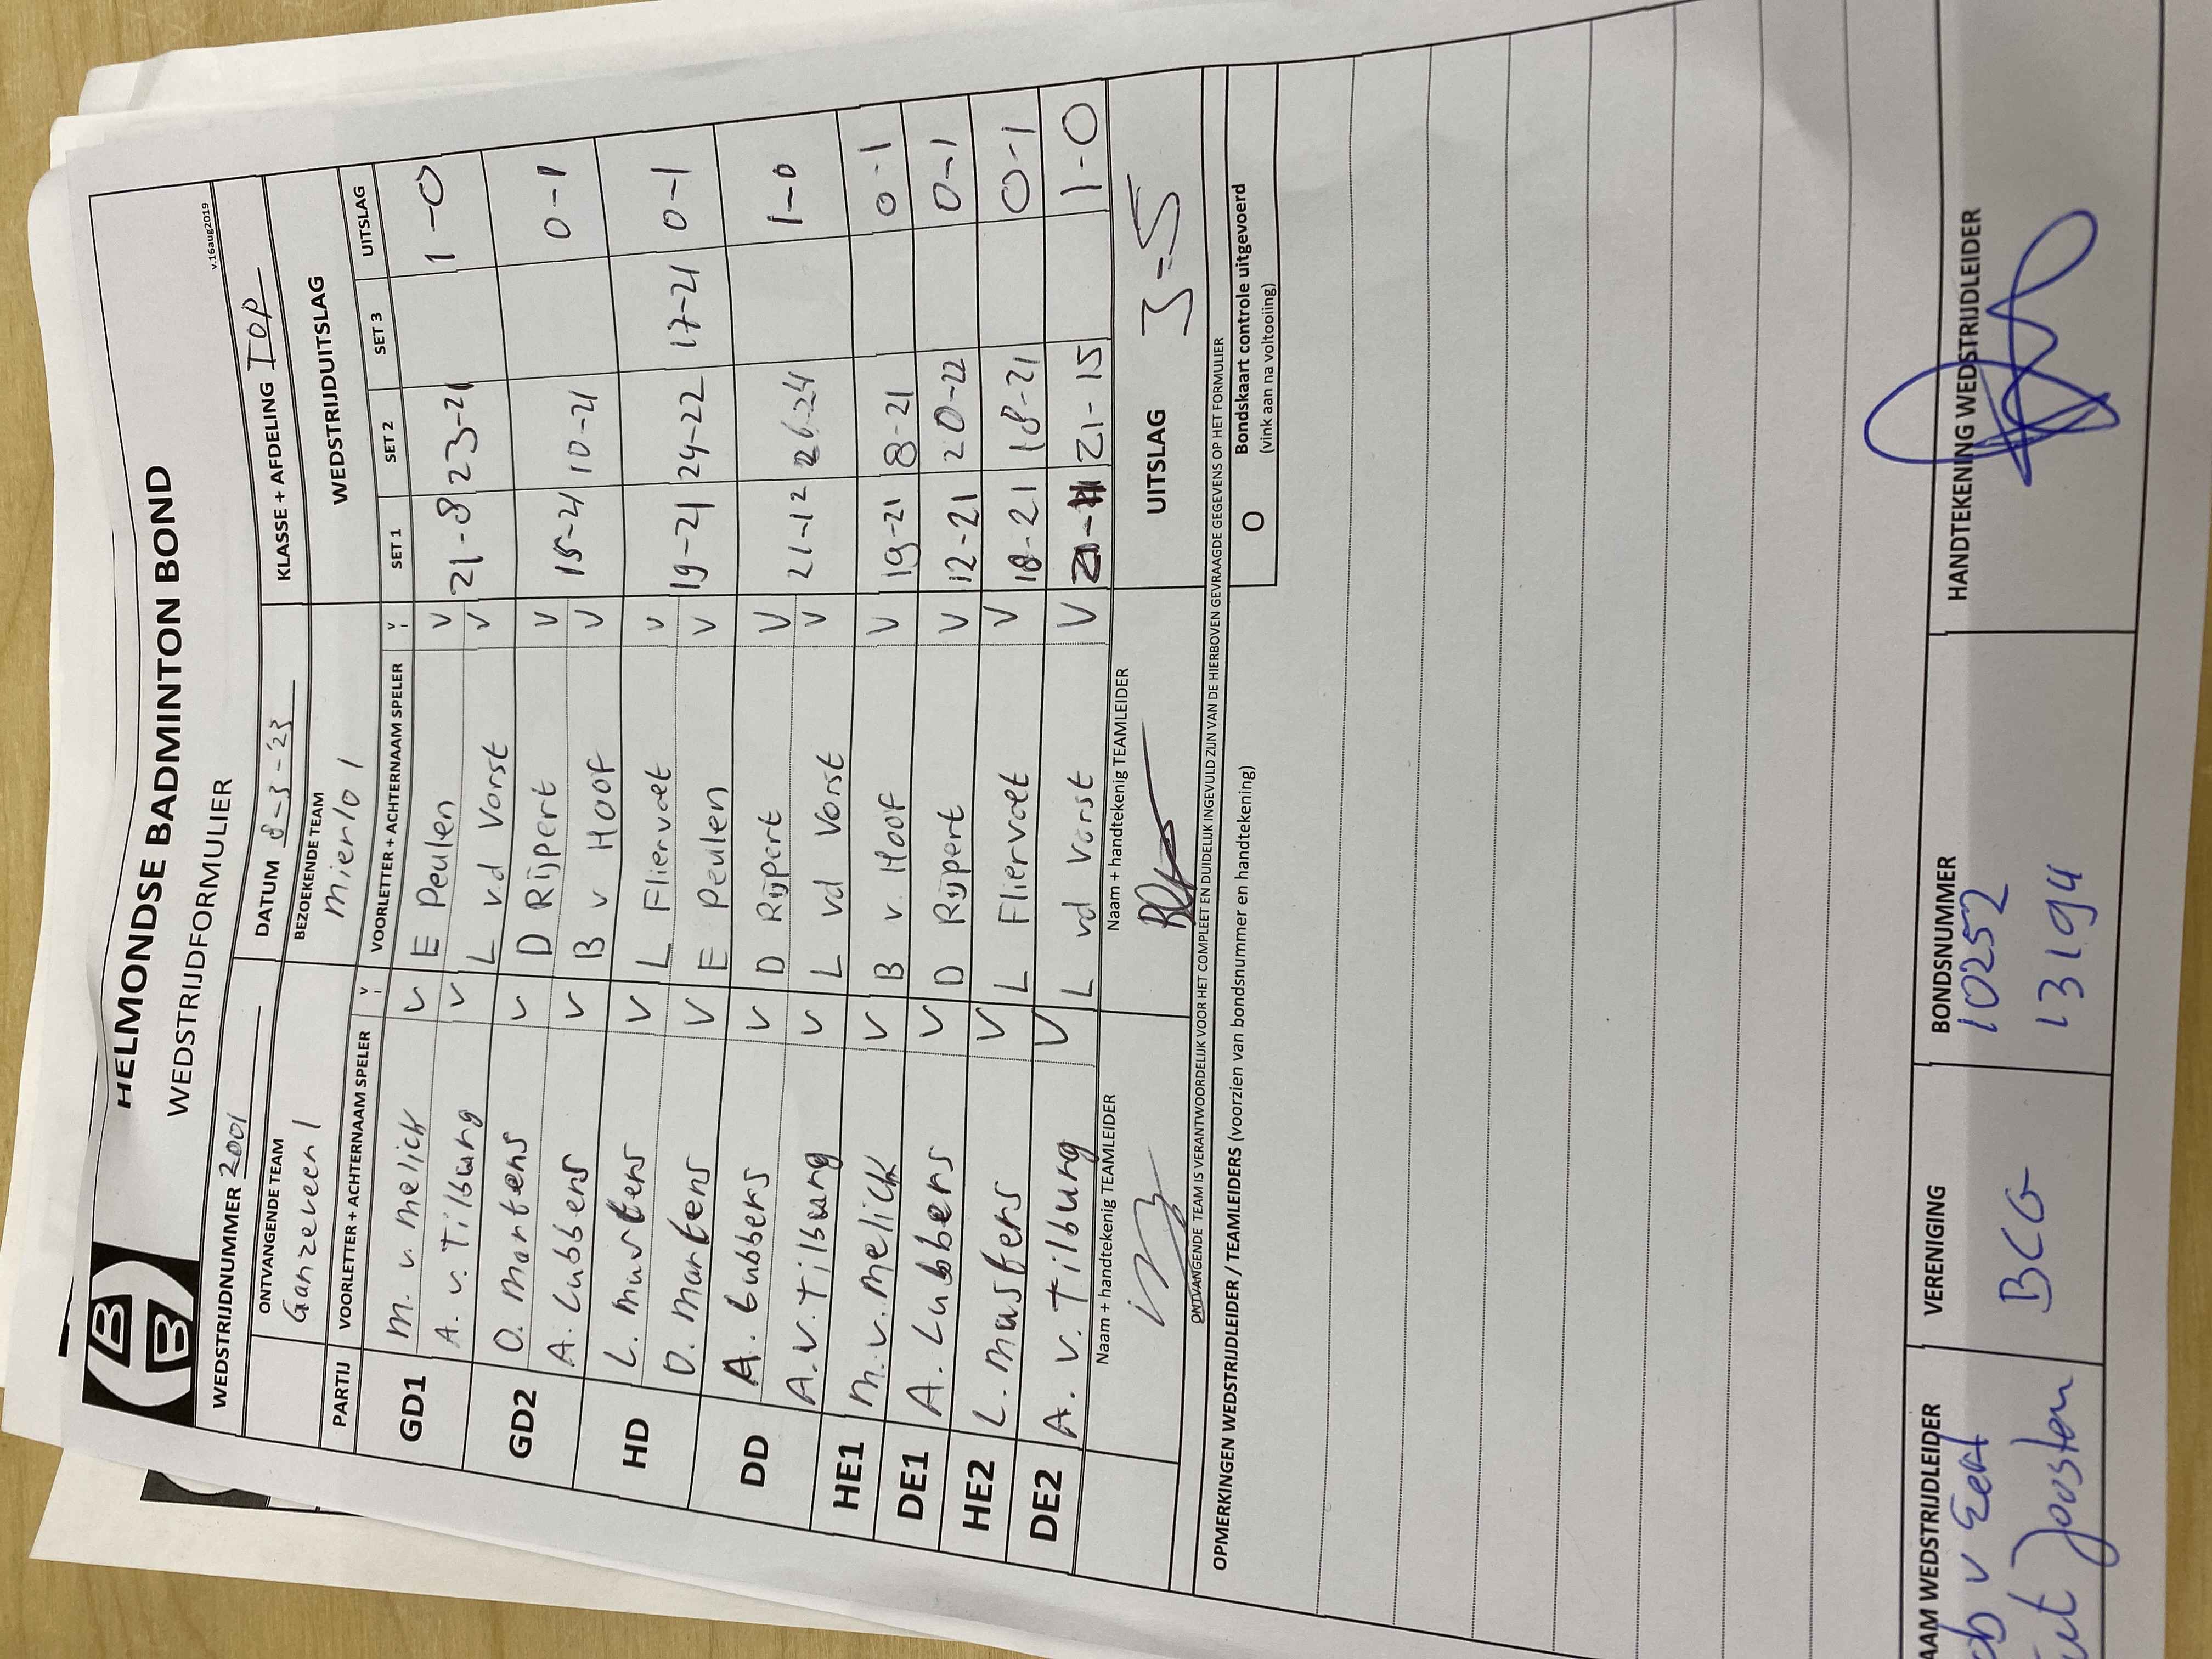 HELMONDSE BADMINTON BOND
WEDSTRIJDFORMULIER
v.16aug2019
WEDSTRIJDNUMMER 2001 DATUM 8-3-'23 KLASSE + AFDELING TOP
ONTVANGENDE TEAM BEZOEKENDE TEAM WEDSTRIJDUITSLAG
Ganzeveen 1 Mierlo 1
PARTIJ VOORLETTER + ACHTERNAAM SPELER V VOORLETTER + ACHTERNAAM SPELER V SET 1 SET 2 SET 3 UITSLAG
GD1 M. v. Melick V E Peulen V 21-8 23-21 1-0
A. v. Tilburg V L v.d Vorst V
GD2 D. Martens V D Rijpert V 15-21 10-21 0-1
A. Lubbers V B v Hoof V
HD L. Musters V L Fliervoet V 19-21 24-22 17-21 0-1
D. Martens V E Peulen V
DD A. Lubbers V D Rijpert V 21-12 26-24 1-0
A. v. Tilburg V L vd Vorst V
HE1 M. v. Melick V B v. Hoof V 19-21 8-21 0-1
DE1 A. Lubbers V D Rijpert V 12-21 20-22 0-1
HE2 L. Musters V L Fliervoet V 18-21 18-21 0-1
DE2 A. v. Tilburg V L vd Vorst V 21-15 1-0
Naam + handtekenig TEAMLEIDER Naam + handtekenig TEAMLEIDER UITSLAG 3-5
ONTVANGENDE TEAM IS VERANTWOORDELIJK VOOR HET COMPLEET EN DUIDELIJK INGEVULD ZIJN VAN DE HIERBOVEN GEVRAAGDE GEGEVENS OP HET FORMULIER
OPMERKINGEN WEDSTRIJDLEIDER / TEAMLEIDERS (voorzien van bondsnummer en handtekening) O Bondskaart controle uitgevoerd
(vink aan na voltooiing)
AAM WEDSTRIJDLEIDER VERENIGING BONDSNUMMER HANDTEKENING WEDSTRIJDLEIDER
ob v Eert 10252
Joosten BCG 13194